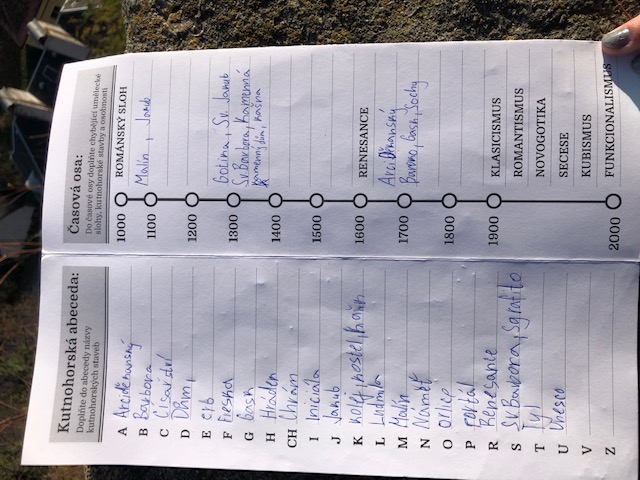 Kutnohorská abeceda:
Doplňte do abecedy názvy
kutnohorských staveb
A Arciděkanský
B Barbora
C Císařství
D Dům,
E erb
F Freska
G Gask
H Hrádek
CH Chrám
I Iniciála
J Jakub
K kolej, kostel, kašn
L Ludmila
M Malín
N Námět
O Orlice
P portál
R Renesance
S Sv Barbora, Sgrafito
T Tyl
U Unesco
V
Z
Časová osa:
Do časové osy doplňte chybějící umělecké
slohy, kutnohorské stavby a osobnosti
1000 ROMÁNSKÝ SLOH
1100 Malín, Jakub
1200
1300 Gotika, Sv. Jakub
Sv Barbora, Kamenná
kamenný dům, kašna
1400
1500
1600 RENESANCE
1700 Arciděkanský
Baroko, Gask, Sochy
1800
1900 KLASICISMUS
ROMANTISMUS
NOVOGOTIKA
SECESE
KUBISMUS
2000 FUNKCIONALISMUS